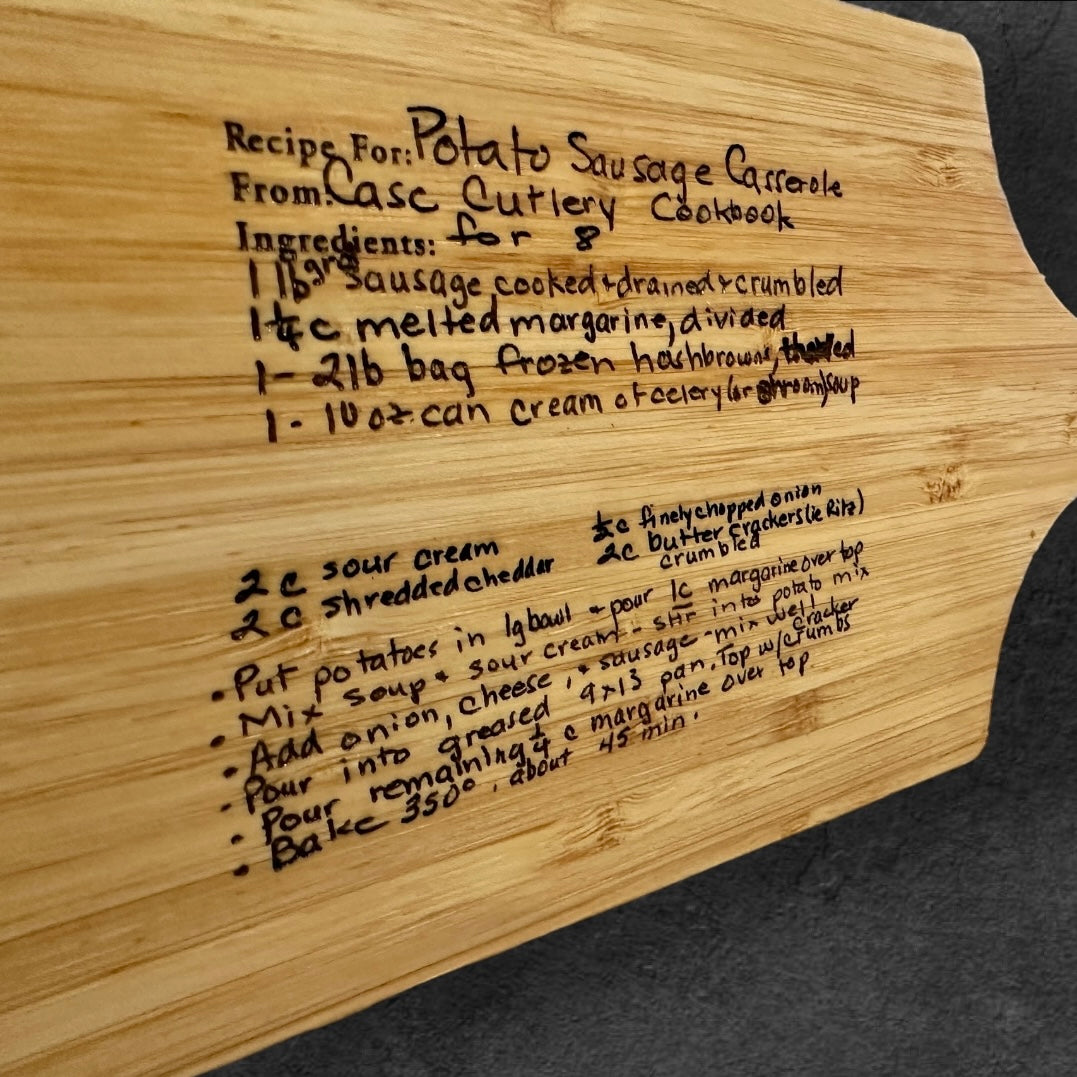 Recipe For: Potato Sausage Casserole
From: Case Cutlery Cookbook
Ingredients: for 8
1 lb grd sausage, cooked + drained + crumbled
1 1/4 c melted margarine, divided
1 - 2 lb bag frozen hashbrowns, thawed
1 - 10 oz. can cream of celery (or shroom) soup
2 c sour cream
2 c shredded cheddar
1/2 c finely chopped onion
2c butter crackers (ie Ritz)
crumbled
• Put potatoes in lg bowl + pour 1c margarine over top
• Mix soup + sour cream - stir into potato mix
• Add onion, cheese, + sausage - mix well
• Pour into greased 9x13 pan. Top w/ cracker crumbs
• Pour remaining 1/4 c margarine over top.
• Bake 350°, about 45 min.